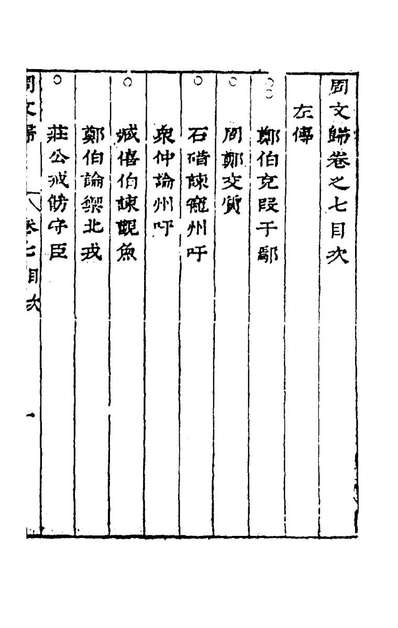 周文歸卷之七目次
左傳
鄭伯克段于鄢
周鄭交質
石碏諫寵州吁
衆仲論州吁
臧僖伯諫觀魚
鄭伯論禦北戎
莊公戒飭守臣
周文歸 卷七目次 一